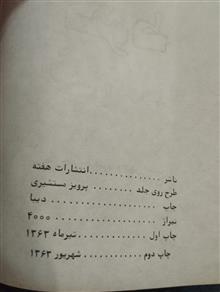 ناشر ................انتشارات هفته
طرح روی جلد ........ پرویز دستشیری
چاپ ................. دیبا
تیراژ ................ ۴۰۰۰
چاپ اول ..............تیرماه ۱۳۶۳
چاپ دوم ............ شهریور ۱۳۶۳